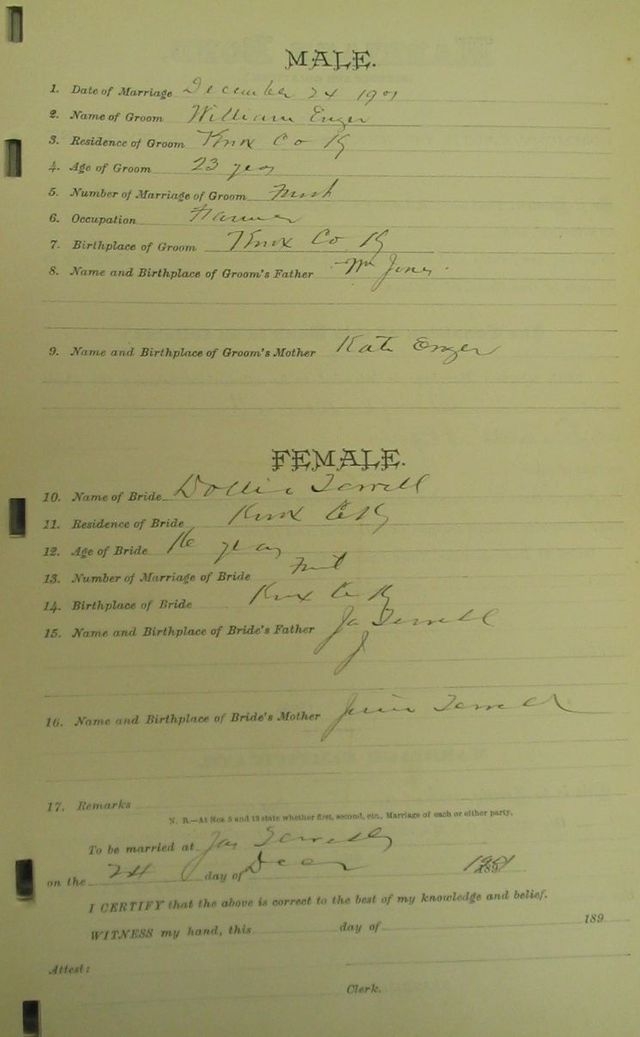 MALE.
1. Date of Marriage December 24 1901
2. Name of Groom William Enzer
3. Residence of Groom Knox Co Ky
4. Age of Groom 23 years
5. Number of Marriage of Groom First
6. Occupation Farmer
7. Birthplace of Groom Knox Co Ky
8. Name and Birthplace of Groom's Father Wm Jones
9. Name and Birthplace of Groom's Mother Kate Enzer
FEMALE.
10. Name of Bride Dollie Terrell
11. Residence of Bride Knox Co Ky
12. Age of Bride 16 years
13. Number of Marriage of Bride First
14. Birthplace of Bride Knox Co Ky
15. Name and Birthplace of Bride's Father Ja Terrell
J
16. Name and Birthplace of Bride's Mother Terrell
17. Remarks
N. B.—At Nos 5 and 13 state whether first, second, etc., Marriage of each or either party.
To be married at Jas Terrells
on the 24 day of Decr 1901
I CERTIFY that the above is correct to the best of my knowledge and belief.
WITNESS my hand, this day of 189
Attest:
Clerk.